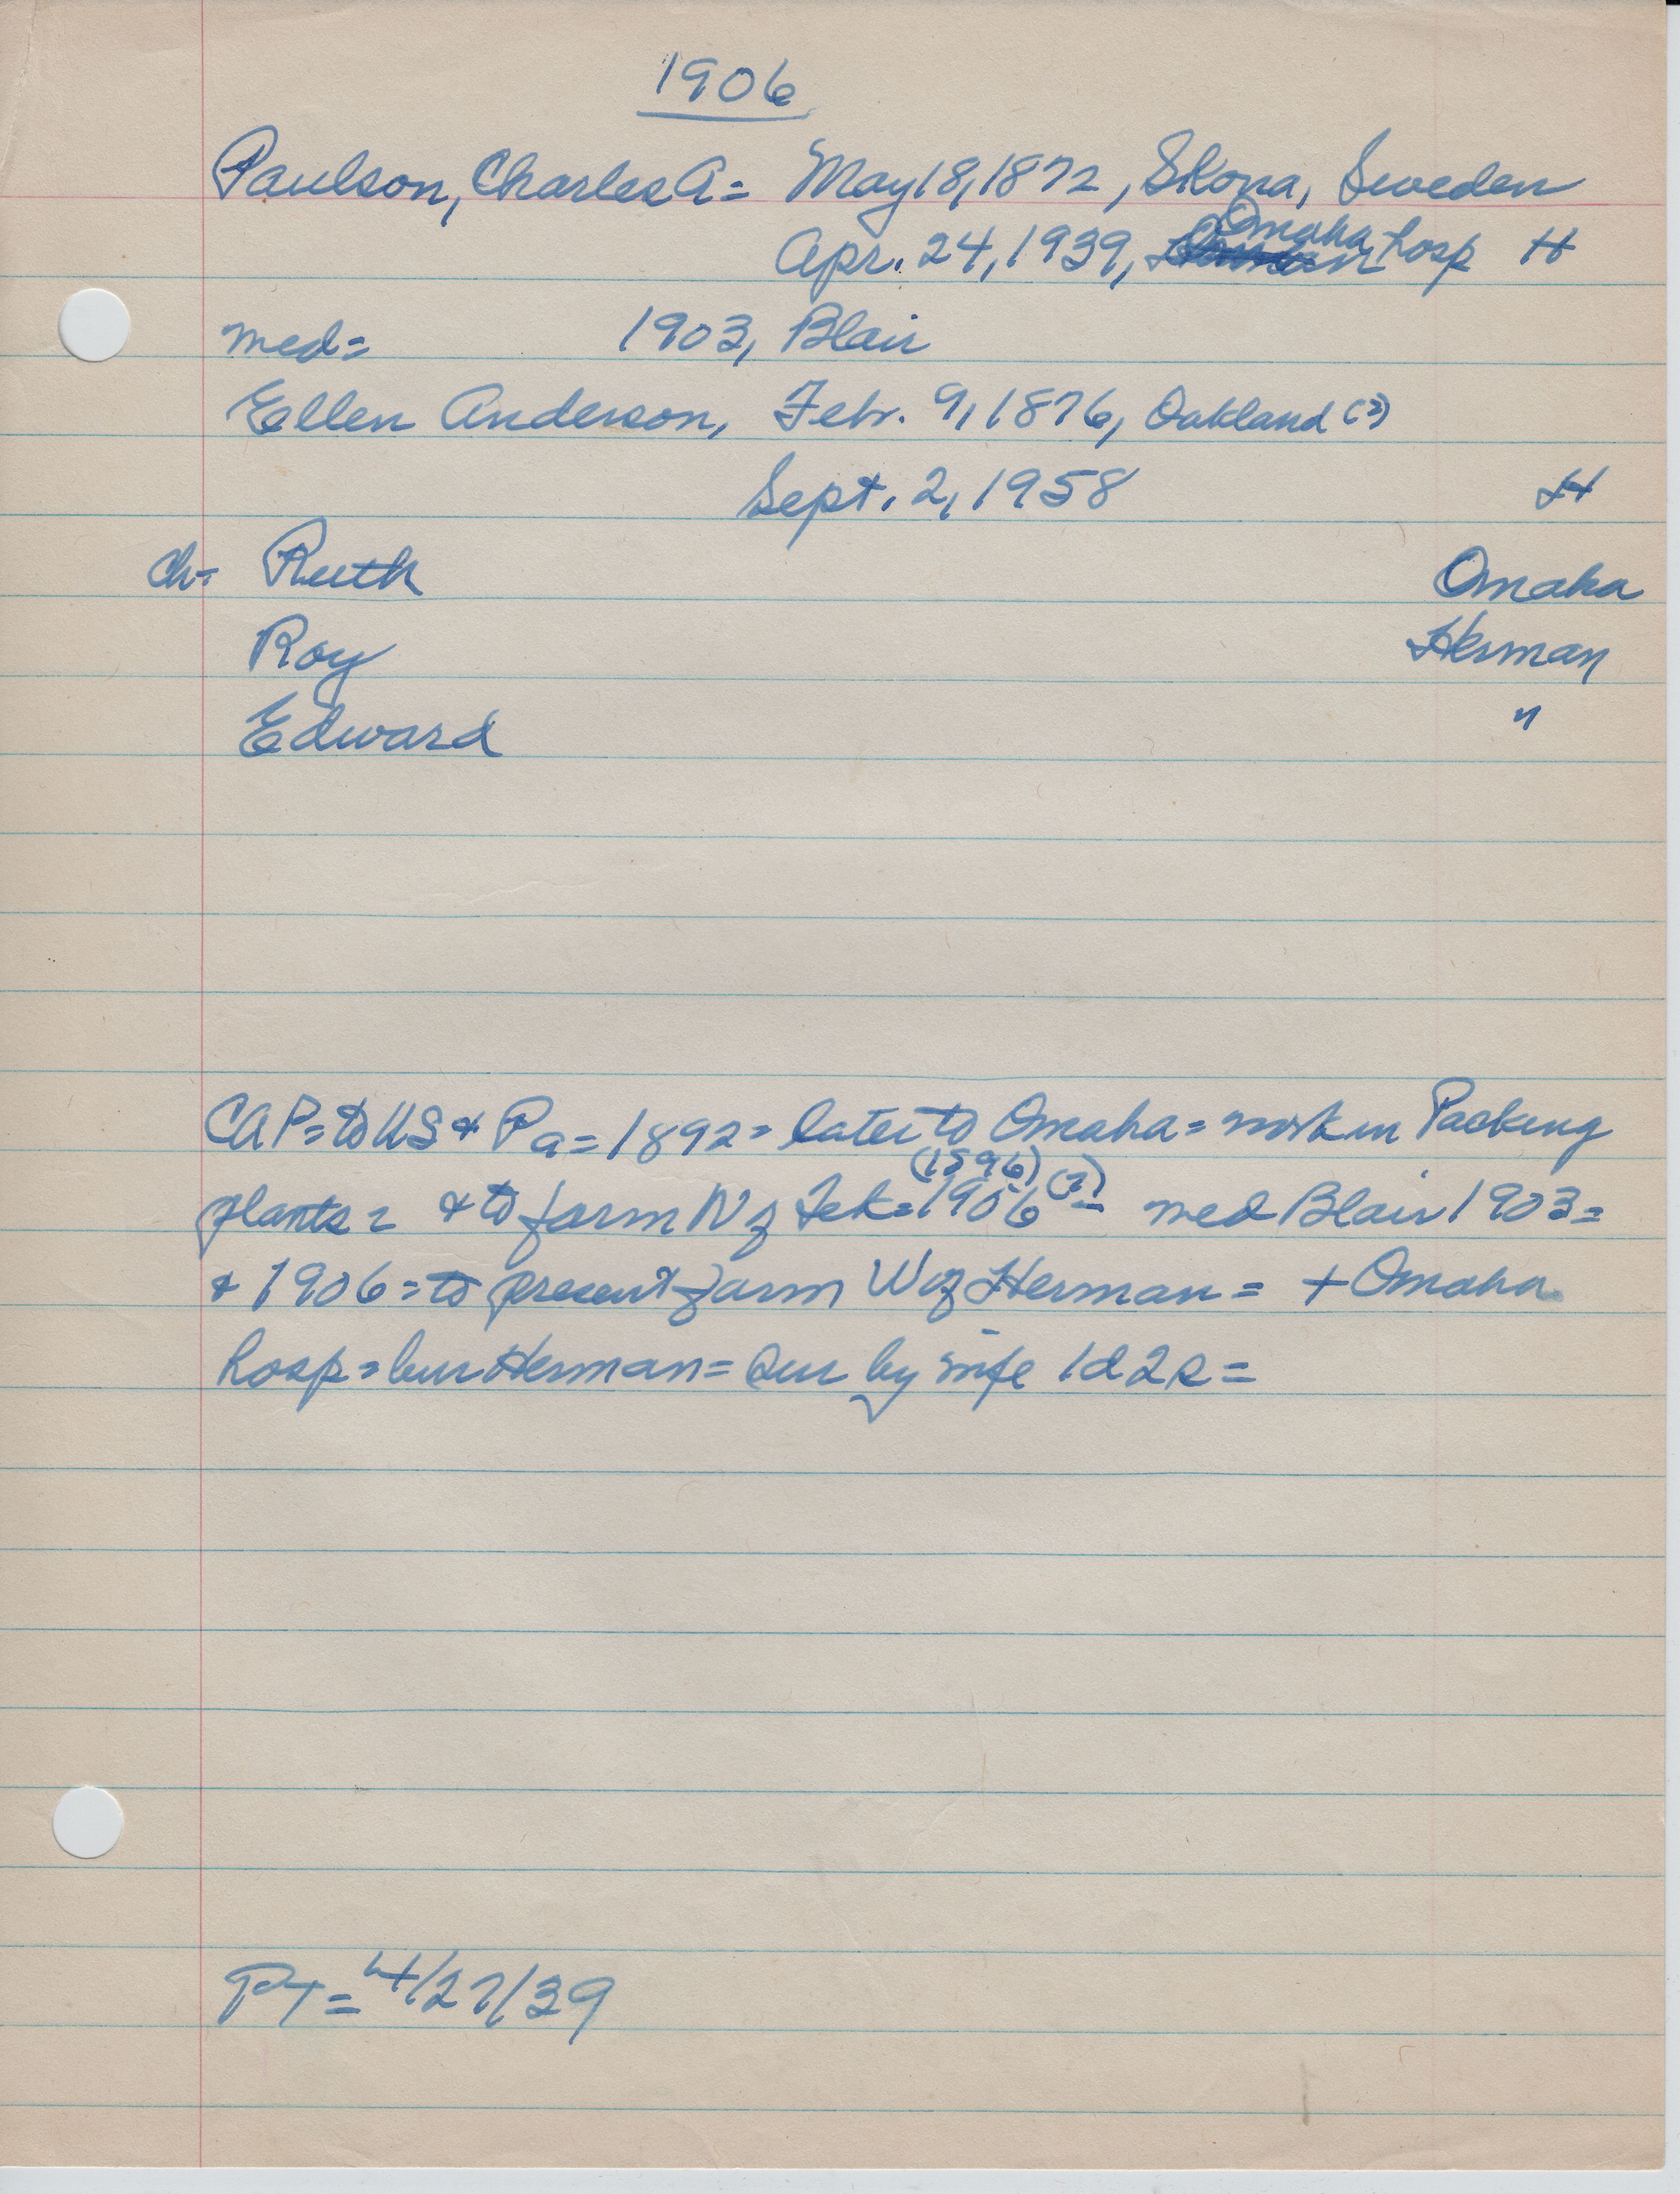 1906
Paulson, Charles A= May 18, 1872, Skona, Sweden
Omaha
Apr. 24, 1939, hosp H
med= 1903, Blair
Ellen Anderson, Febr. 9, 1876, Oakland (?)
Sept. 2, 1958 H
ch= Ruth Omaha
Roy Herman
Edward "
CAP= to US & Pa= 1892= later to Omaha= work in Packing
(1896) (?)
plants= & to farm N of Tek= 1906= med Blair 1903=
& 1906= to present farm W of Herman= + Omaha
hosp= bur Herman= sur by wife 1d 2s=
PT= 4/27/39